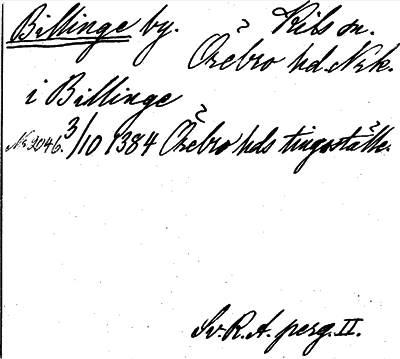 Billinge by. Kils sn.
Örebro hd. Nrk.
i Billinge
Nr 2046. 3/10 1384 Örebro hds tingsställe.
Sv. R. A. perg. II.